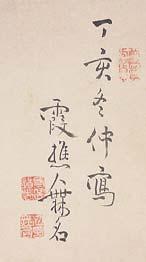 丁亥冬仲寫
霞樵人無名